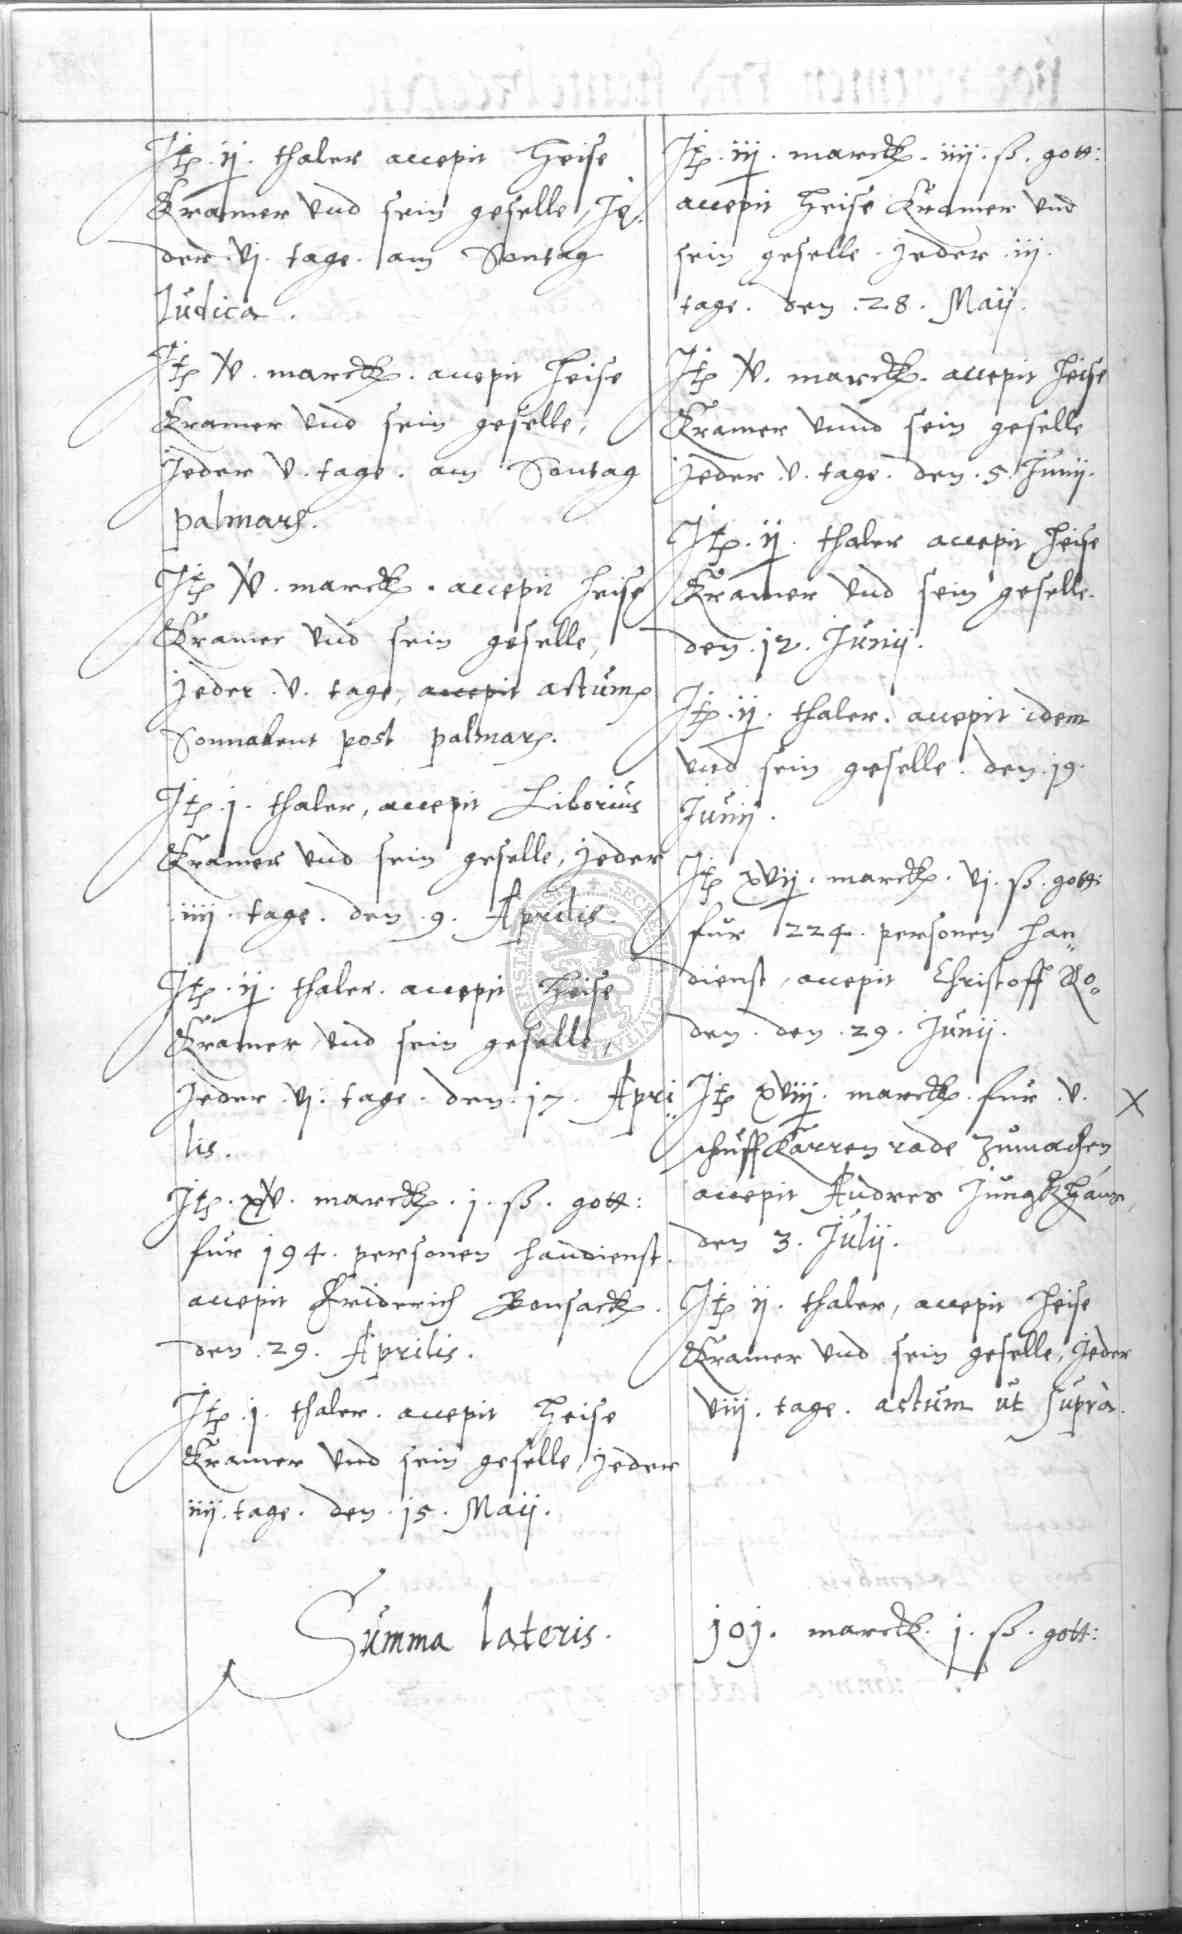 Itp. ij. thaler accepit Heise
Kramer vnd sein geselle, Je,
der. vj. tage. am Sontag
Judica.
Itp V. marck. accepit Heise
Kramer vnd sein geselle,
Jeder v. tage. am Sontag
palmar.
Itp V. marck. accepit Heise
Kramer vnd sein geselle,
Jeder. v. tage, accepit actum
Sonnabent post palmar.
Itp. j. thaler, accepit Liborius
Kramer vnd sein geselle, Jeder
iiij. tage. den. 9. Aprilis.
Itp. ij. thaler. accepit Heise
Kramer vnd sein geselle,
Jeder. vj. tage. den. 17. Apri
lis.
Itp. XV. marck. j. ß. gott:
fur 194. personen handienst.
accepit Friderich Bonsack.
den. 29. Aprilis.
Itp. j. thaler. accepit Heise
Kramer vnd sein geselle, Jeder
iiij. tage. den. 15. Maij.
Itp. iij. marck. iiij. ß. gott:
accepit Heise Kramer vnd
sein geselle. Jeder. iij.
tage. den. 28. Maij.
Itp V. marck. accepit Heise
Kramer vnnd sein geselle
Jeder. v. tage. den. 5. Junij.
Itp. ij. thaler accepit Heise
Kramer vnd sein geselle.
den. 12. Junij.
Itp. ij. thaler. accepit idem
vnd sein geselle. den. 19.
Junij.
Itp xvij. marck. vj. ß. gott:
fur 224. personen han„
dienst, accepit Christoff Ro„
den. den. 29. Junij.
Itp xviij. marck. fur. v. X
schuffkarren rade zumachen
accepit Andres Jungkhans,
den 3. Julij.
Itp ij. thaler, accepit Heise
Kramer vnd sein geselle, Jeder
viij. tage. actum ut supra.
Summa lateris. 101. marck. j. ß. gott: